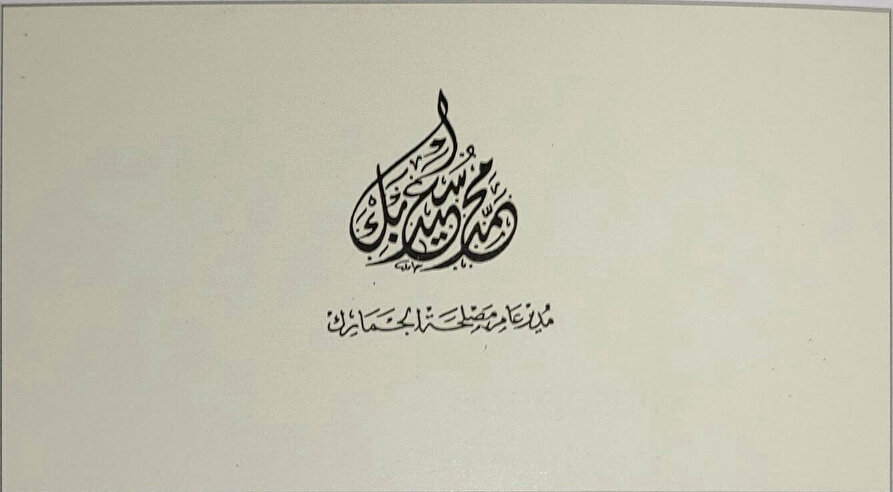 محمد سعيد بك
مدير عام مصلحة الجمارك